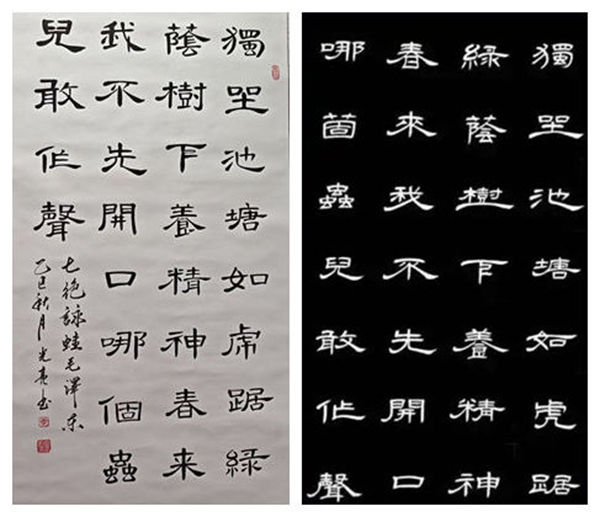 獨坐池塘如虎踞綠
蔭樹下養精神春来
我不先開口哪個蟲
兒敢作聲
七绝詠蛙毛澤东
乙巳秋月光亮书
獨坐池塘如虎踞
綠蔭樹下養精神
春來我不先開口
哪箇蟲兒敢作聲